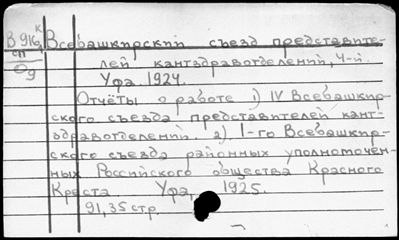 В916к Всебашкирский съезд представите-
сп лей кантздравотделений, 4-й.
Од Уфа. 1924.
Отчёты о работе 1) IV Всебашкир-
ского съезда представителей кант-
здравотделений. 2) 1-го Всебашкир-
ского съезда районных уполномочен-
ных Российского общества Красного
Креста. Уфа, 1925.
91, 35 стр.